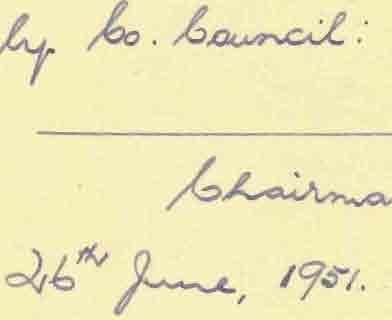 by Co. Council:
Chairma
26th June, 1951.